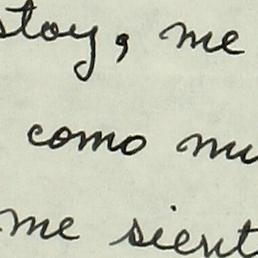 stoy, me
como
me sient